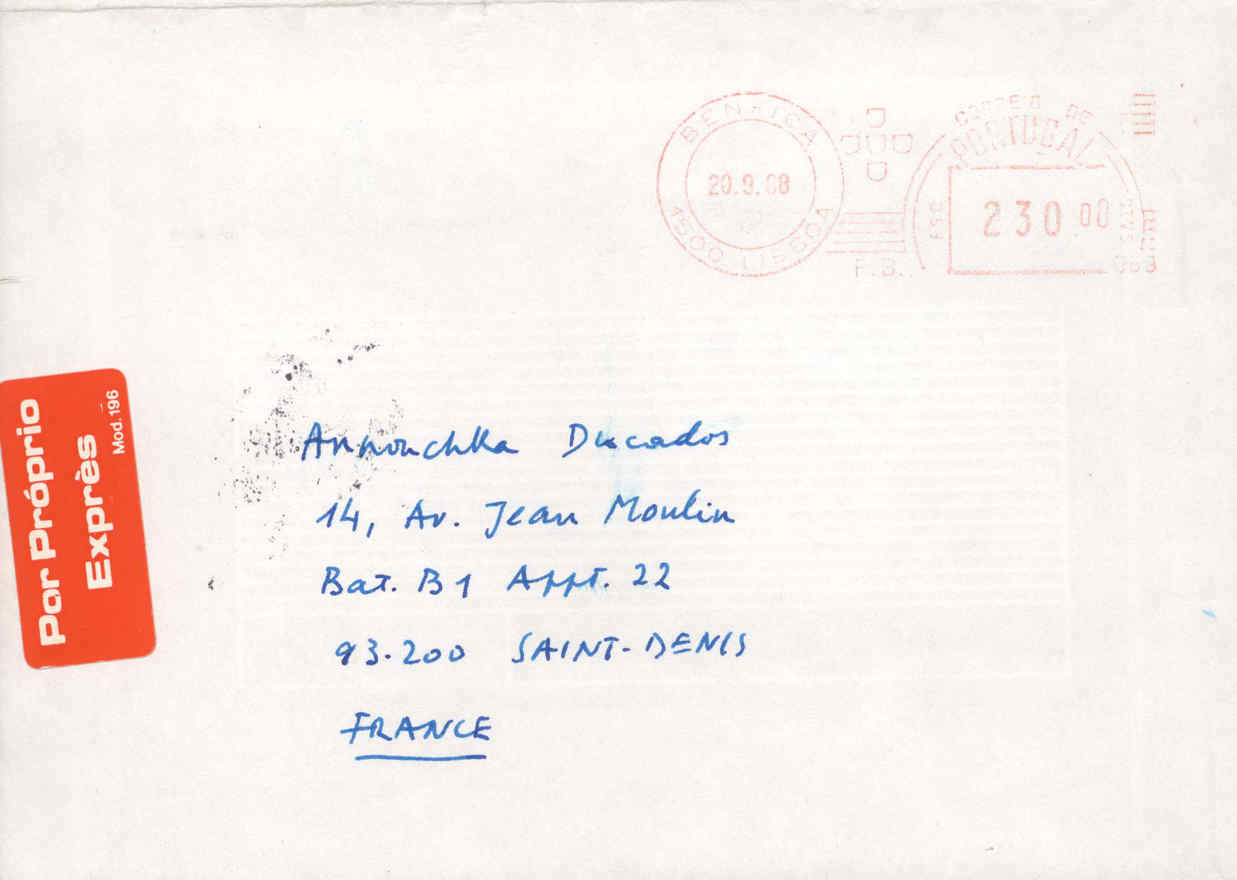 BENFICA
20.9.88
1500 LISBOA
P.B.
CORREIO DE
PORTUGAL
ESC
230 00
Par Próprio
Exprès
Mod. 196
Annouchka Ducados
14, Av. Jean Moulin
Bat. B1 Appt. 22
93.200 SAINT-DENIS
FRANCE